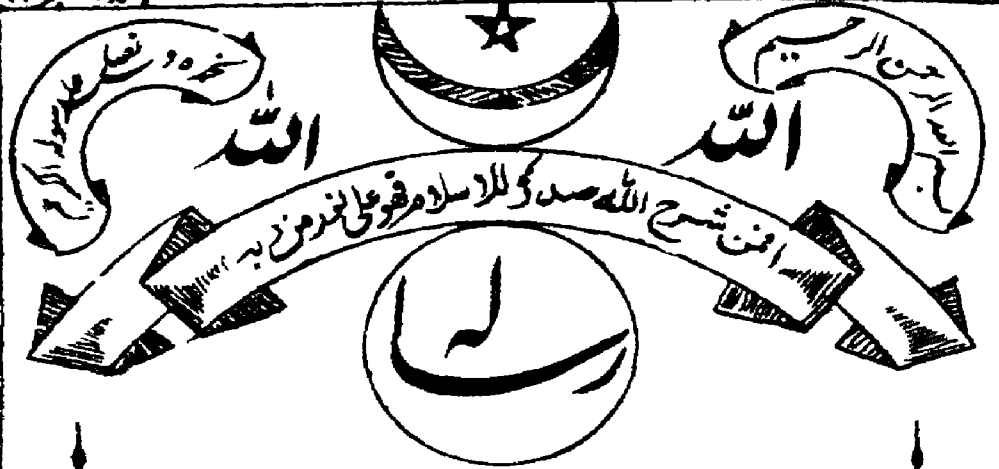 بسم الله الرحمن الرحیم
نحمدہ و نصلی علی رسولہ الکریم
اللہ
اللہ
افمن شرح اللہ صدرہ للاسلام فھو علی نور من ربہ
رسالہ